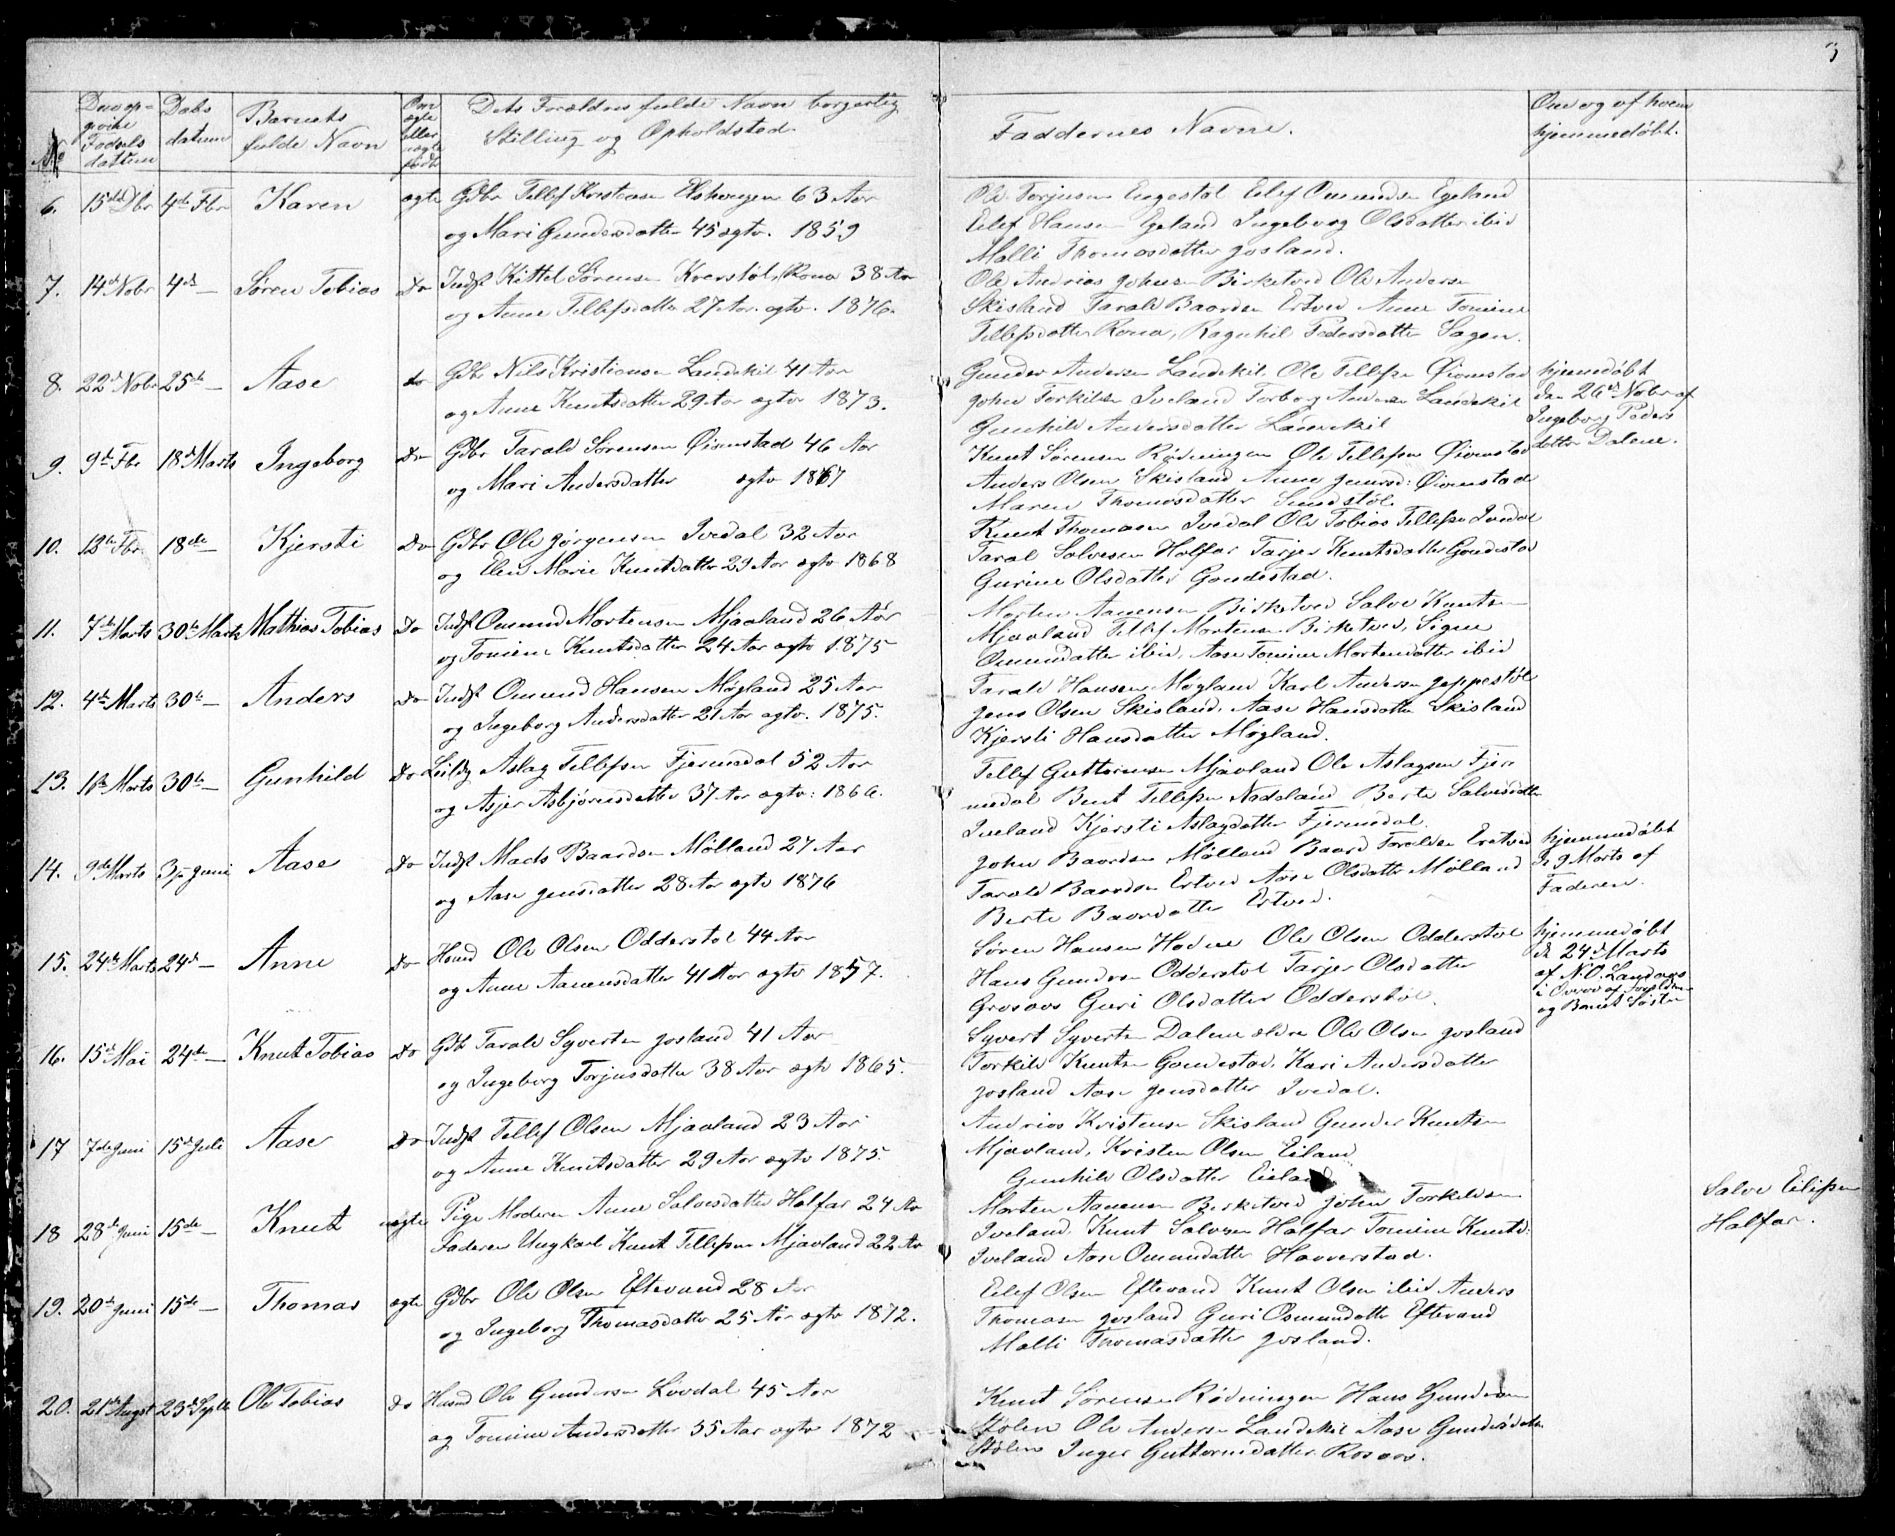 3
No
Den op-
givne
Fødsels
datum
Daabs
datum
Barnets
fulde Navn
Om
ægte
eller
uægte
født
Dets Forældres fulde Navn borgerlig
Stilling og Opholdsted.
Faddernes Navne.
Om og af hvem
hjemmedøbt.
6. 15de Dbr 4de Fbr Karen ægte Gdbr Tellef Kristensen 63 Aar
og Mari Gundersdatter 45 ægtv. 1859
Ole Torjusen Engestøl Eilef Omundsen Egeland
Eilef Hansen Egeland Ingeborg Olsdatter ibid
Malli Thomasdatter Josland.
7. 14de Nobr 4de — Søren Tobias Do Indst Kittel Sørensen Kverstøl, Rona 38 Aar
og Anne Tellefsdatter 27 Aar. ægtv. 1876.
Ole Andrias Johnsen Birketved Ole Andersen
Skisland Tarald Baardsen Ertved Anne Tomine
Tellefsdatter Rona, Ragnhil Pedersdatter Hagen.
8. 22de Nobr 25de — Aase do Gdbr Nils Kristiansen Landskil 41 Aar
og Anne Knutsdatter 29 Aar ægtv 1873.
Gunder Andersen Landskil Ole Tellefsen Øvomstad
John Torkilsen Iveland Torborg Andersen Landskil
Gunhild Andersdatter Landskil
hjemdøbt
den 26de Nobr af
Ingeborg Peders
datter Dalene.
9. 9de Fbr 18de Marts Ingeborg Do Gdbr Tarald Sørensen Øvomstad 46 Aar
og Mari Andersdatter ægtv 1867
Knut Sørensen Rødningen Ole Tellefsen Øvomstad
Anders Olsen Skisland Anne Øvomstad
Maren Thomasdatter Sundstøl
10. 12te Fbr. 18de — Kjersti Do Gdbr Ole Jørgensen Ivedal 32 Aar
og Elen Marie Knutsdatter 29 Aar ægtv 1868
Knut Thomasen Ivedal Ole Tobias Tellefsen Ivedal
Taral Salvesen Halfar Tarjer Knutsdatter Gondestad
Gurine Olsdatter Gondestad.
11. 7de Marts 30te Marts Mathias Tobias Do Indst Omund Mortensen Mjavland 26 Aar
og Tomine Knutsdatter 24 Aar ægtv 1875
Morten Aanensen Birketved Salve Knutsen
Mjavland Tellef Mortensen Birketved, Signe
Omundatter ibid, Aase Tomine Mortensdatter ibid
12. 4de Marts 30te — Anders Do Indst Omund Hansen Møgland 25 Aar
og Ingeborg Andersdatter 21 Aar ægtv. 1875.
Tarald Hansen Møgland Karl Andersen Jeppestøl
Jens Olsen Skisland. Aase Hansdatter Skisland
Kjersti Hansdatter Møgland.
13. Marts 30te — Gunhild Do Aslag Tellefsen Fjermedal 52 Aar
og Asjer Asbjørnsdatter 37 Aar ægtv: 1866.
Tellef Guttormsen Mjavland Ole Aslagsen Fjer
medal Bent Tellefsen Nadeland Berte Salvesdatter
Iveland Kjersti Aslagdatter Fjermedal.
14. 9de Marts 3je Juni Aase Do Indst Mads Baardsen Mølland 27 Aar
og Aase Jensdatter 28 Aar ægtv 1876
John Baardsen Mølland Baard Taraldsen Ertved
Tarald Baardsen Ertved Aase Olsdatter Mølland
Berte Baardatter Ertved.
hjemmedøbt
d. 9 Marts af
Faderen.
15. 24de Marts 24de — Anne Do Husmd Ole Olsen Odderstøl 44 Aar
og Anne Aanensdatter 41 Aar ægtv 1857.
Søren Hansen Hodne Ole Olsen Odderstøl
Hans Gundersen Odderstøl Tarjer Olsdatter
Grosaas Guri Olsdatter Odderstøl.
hjemmedøbt
de 24de Marts
af N.O. Landaas
i Overv af Forældre
og Barnets Søster
16. 15de Mai 24de — Knut Tobias Do Gdbr Tarald Syvertsen Josland 41 Aar
og Ingeborg Torjusdatter 38 Aar ægtv 1865.
Syvert Syvertsen Dalene ældre Ole Olsen Josland
Torkild Knutsen Gondestad, Kari Andersdatter
Josland Aase Jensdatter Ivedal.
17 7de Juni 15de Juli Aase Do Indst Tellef Olsen Mjavland 23 Aar
og Anne Knutsdatter 29 Aar ægtv 1875.
Andrias Kristensen Skisland Gunder Knutsen
Mjavland, Kristen Olsen Eiland
Gunhild Olsdatter Eiland
18 28de Juni 15de — Knut uægte Pige Moderen Anne Salvesdatter Halfar 24 Aar
Faderen Ungkarl Knut Tellefsen Mjavland 22 Aar
Morten Aanensen Birketved John Torkildsen
Iveland. Knut Salvesen Halfar Tomine Knutsd:
Iveland Aase Omundatter Haaverstad.
Salve Eilifsen
Halfar.
19. 20de Juni 15de — Thomas ægte Gdbr Ole Olsen Eftevand 28 Aar
og Ingeborg Thomasdatter 25 Aar ægtv 1872.
Eilef Olsen Eftevand Knut Olsen ibid Anders
Thomasen Josland Guri Osmundatter Eftevand
Malli Thomasdatter Josland.
20. 21de Augst 23de Septb Ole Tobias do Husmd Ole Gundersen Lovdal 45 Aar
og Tomine Andersdatter 35 Aar ægtv 1872
Knut Sørensen Rødningen Hans Gundersen
Stølen Ole Andersen Landskil Aase Gundersdatter
Stølen Inger Guttormsdatter Rosaas.